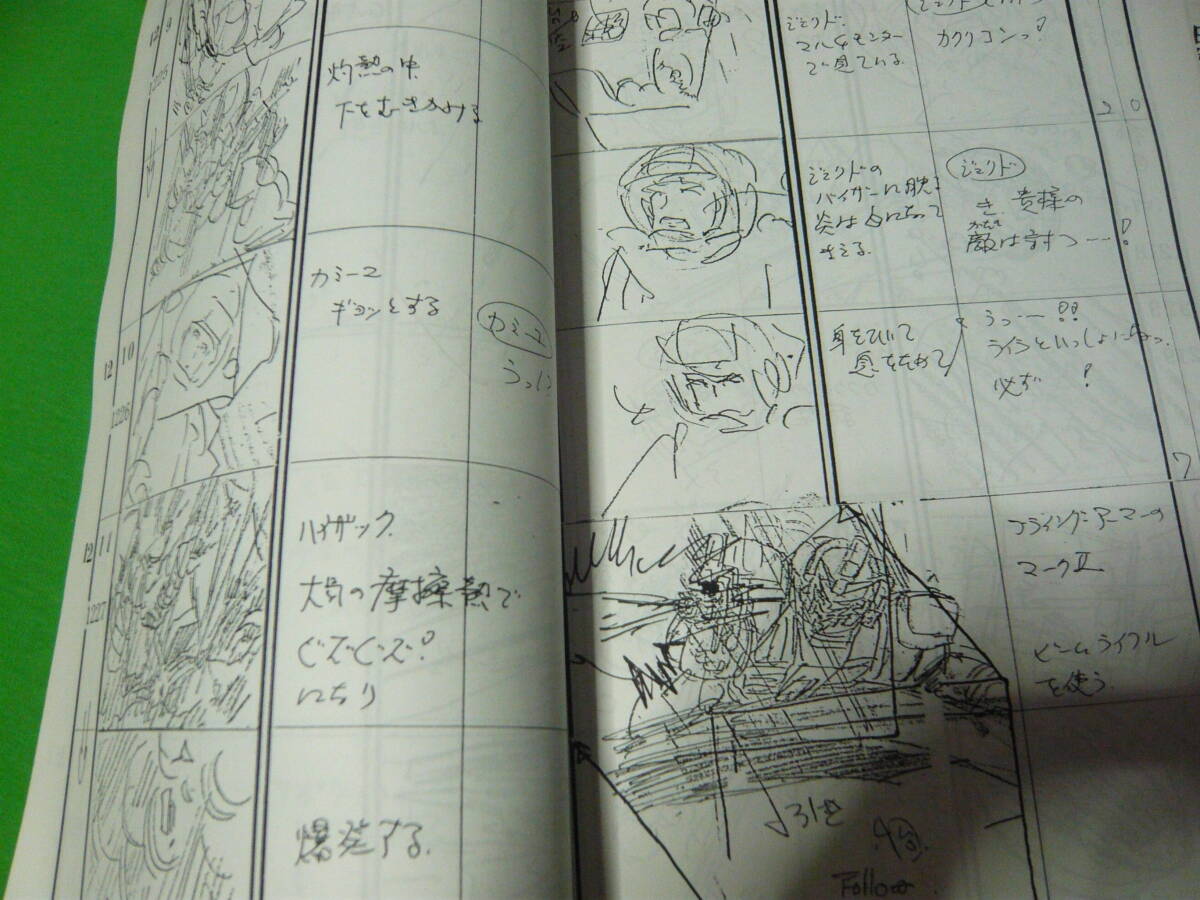 灼熱の中
下をむきかける
カミーユ
ギョッとする
カミーユ
うっ!?
12 10
1226
ハイザック
大気の摩擦熱で
グズグズ!
になり
12 11
1227
爆発する。
ジェリド
マルチモニター
で見ている。
カクリコンっ!
20
ジェリドの
バイザーに映る
炎は白になって
消える。
ジェリド
き 貴様の
かたき
敵は討つ……!
身をひいて
息をためて
うっ…!!
ライラといっしょにな っ、
必ず!
7
フライング=アーマーの
マークⅡ
ビームライフル
を使う
引き
Follow